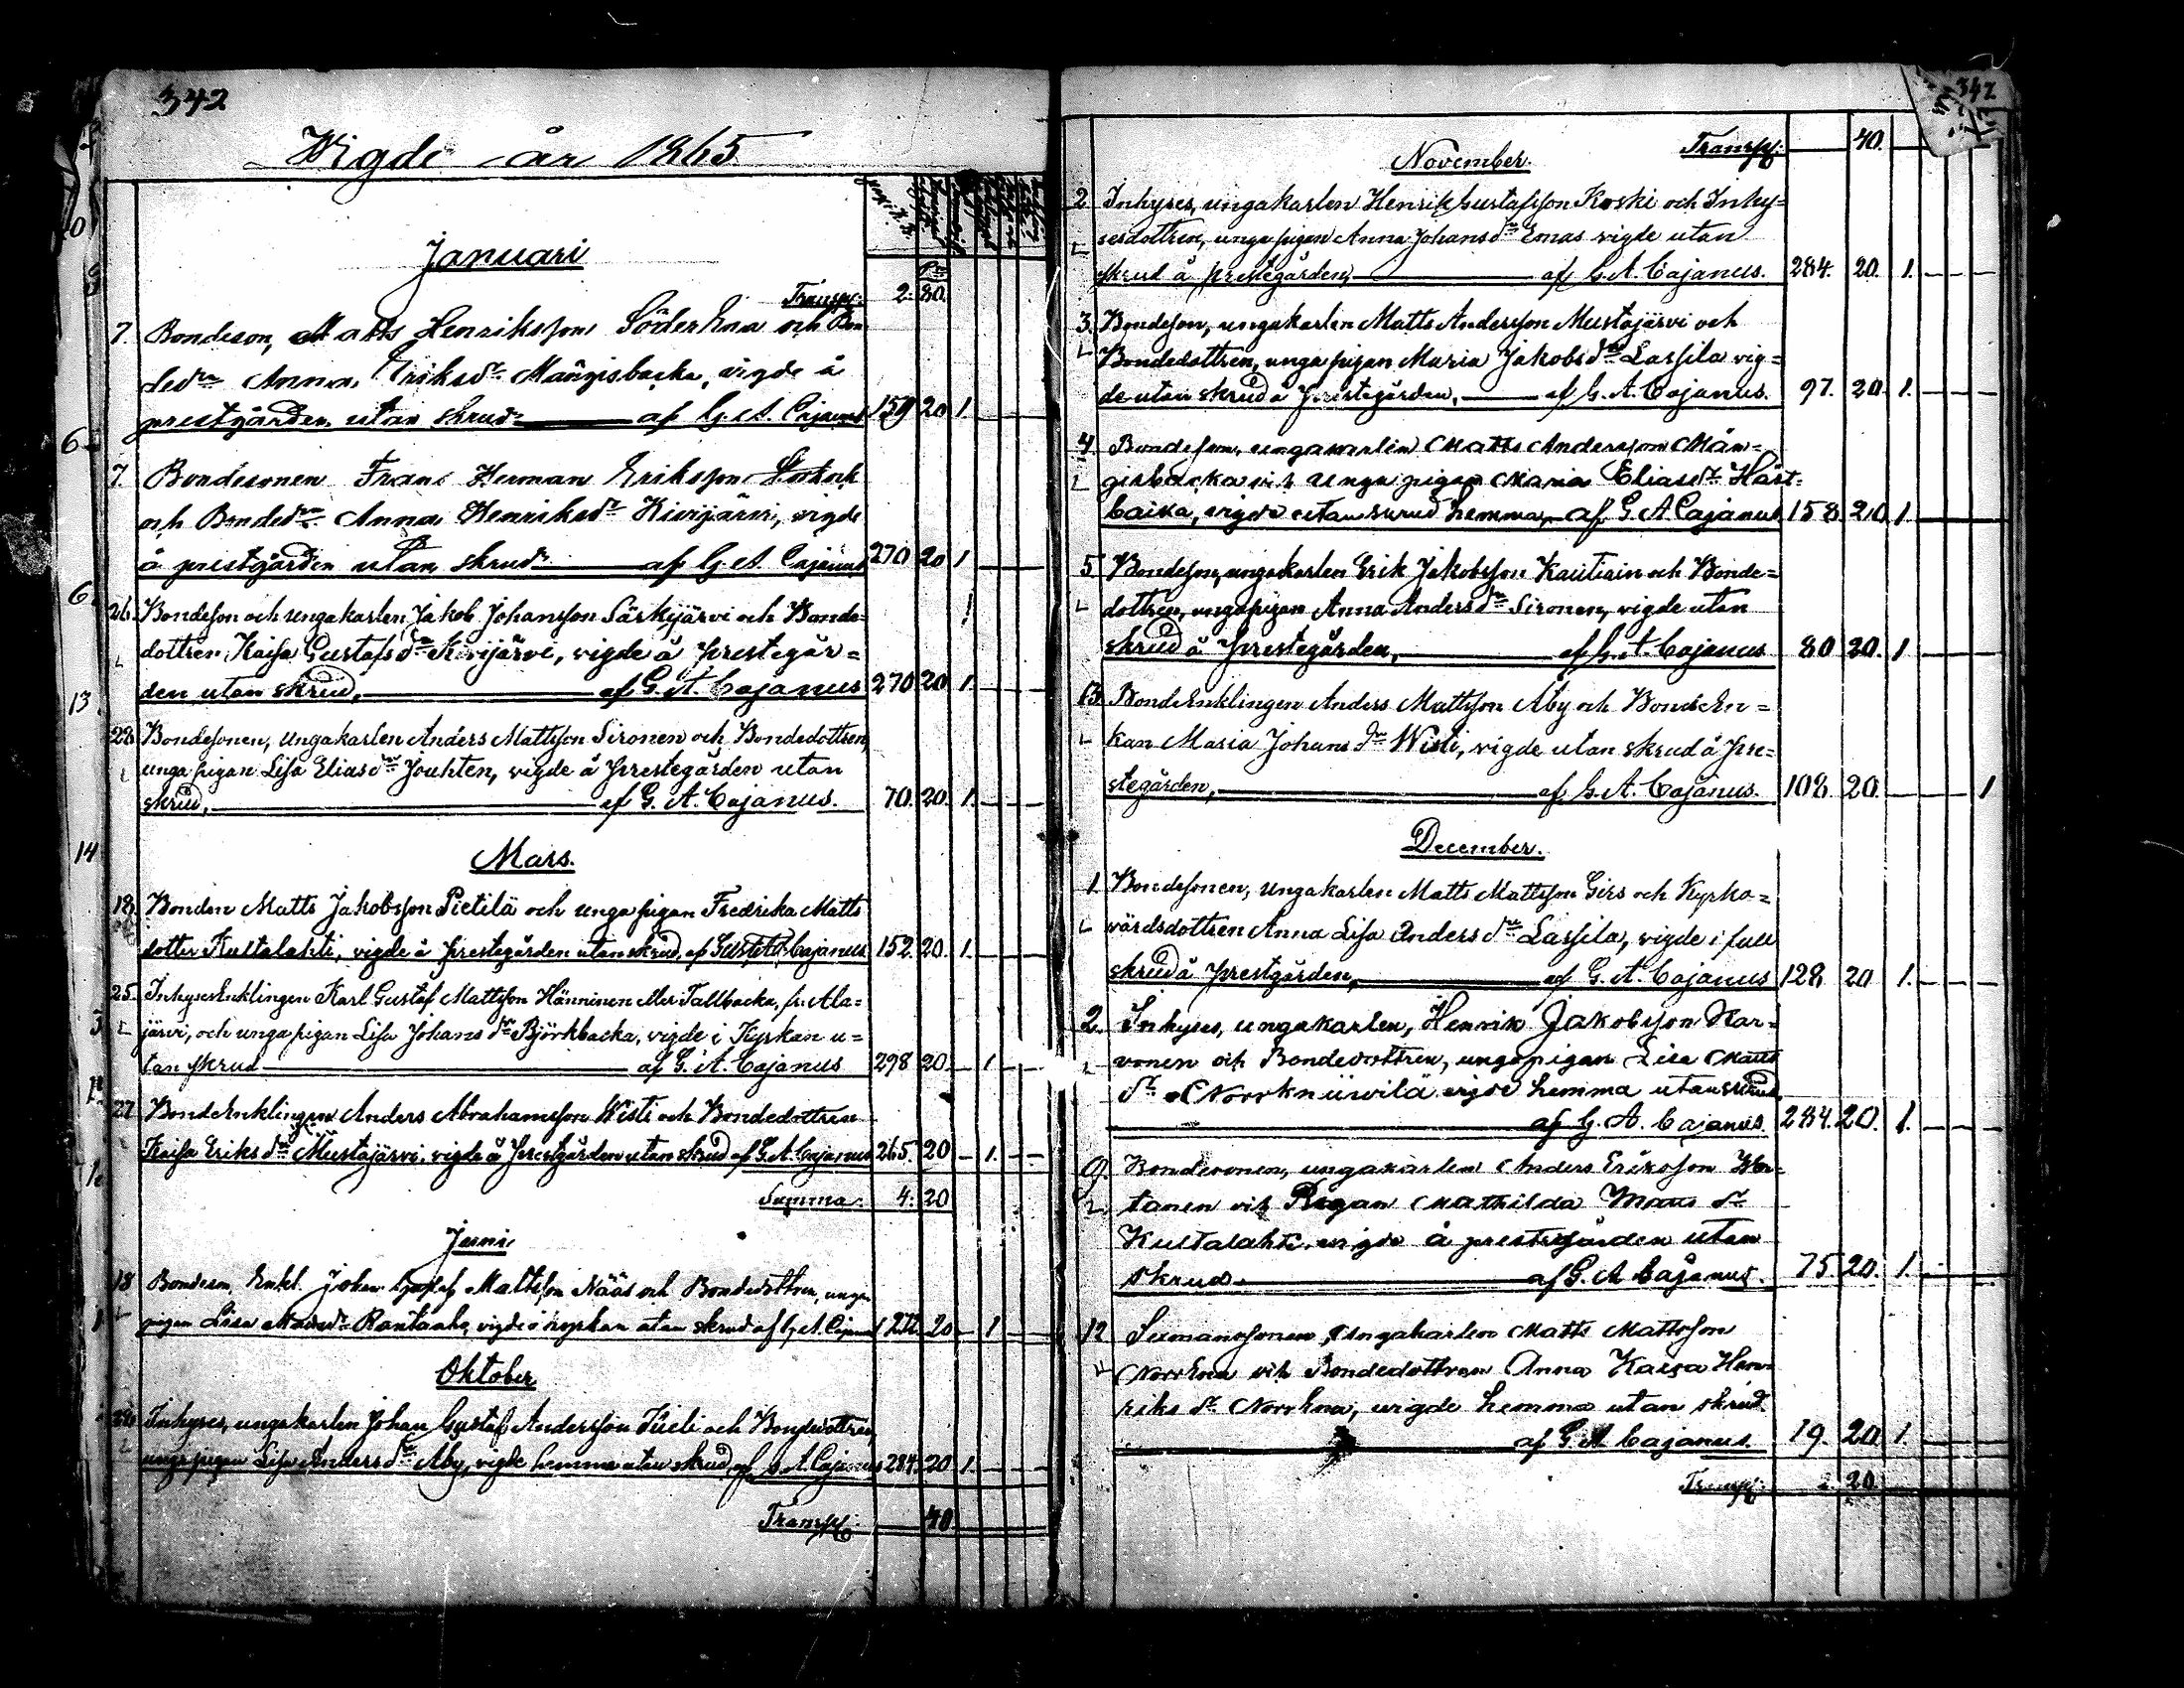 342
Wigde år 1865
Januari
P:ni
Transp: 2. 80.
7. Bondeson, Matts Henriksson Söder Ena och Bon
dedr Anna Eriksdr Mångisbacka, vigde å
prestgården utan skrud af G. A. Cajanus 159 20 1.
7. Bondesonen Frans Herman Eriksson
och Bondedr Anna Henriksdr Kivijärvi, vigde
å prestgården utan skrud af G. A. Cajanus 270 20 1
26. Bondeson och ungakarlen Jakob Johansson Särkijärvi och Bonde-
dottren Kaisa Gustafsdr Kivijärvi, vigde å prestegår=
den utan skrud, af G. A. Cajanus 270 20 1.
28. Bondesonen, Ungakarlen Anders Mattsson Sironen och Bondedottren,
unga pigan Lisa Eliasdr Jouhten, vigde å Prestegården utan
skrud, af G. A. Cajanus. 70. 20. 1.
Mars.
18. Bonden Matts Jakobsson Pietilä och unga pigan Fredrika Matts
dotter Kultalahti, vigde å prestegården utan skrud, af Cajanus 152. 20. 1.
25. InhysesEnklingen Karl Gustaf Mattsson Hänninen eller Tallbacka, fr. Ala=
järvi, och unga pigan Lisa Johansdr Björkbacka, vigde i Kyrkan u=
tan skrud af G. A. Cajanus 298 20. 1
27 BondEnklingen Anders Abrahamsson Wisti och Bondedottren
Kaisa Eriksdr Mustajärvi, vigde å Prestgården utan skrud af G. A. Cajanus 265. 20 1.
Summa. 4. 20
Juni
18 Bondeson, Enkl. Johan Gustaf Mattsson Nääs och Bondedottren, unga
pigan Lisa Rantaaho, vigde i kyrkan utan skrud af G. A. Cajanus 20 1
Oktober
Inhyses, ungakarlen Johan Gustaf Andersson och Bondedottren,
unga pigan Lisa Andersdr Aby, vigde hemma utan skrud, af G. A. Cajanus 284. 20 1.
Transp: 40
342
Transp: 40.
November.
2 Inhyses, ungakarlen Henrik Gustafsson Koski och Inhy=
sesdottren, unga pigan Anna Johansdr Emas vigde utan
skrud å prestegården, af G. A. Cajanus. 284. 20. 1.
3. Bondeson, ungakarlen Matts Andersson Mustajärvi och
Bondedottren, unga pigan Maria Jakobsdr Lassila vig=
de utan skrud å Prestegården, af G. A. Cajanus. 97. 20. 1.
4. Bondeson, ungakarlen Matts Andersson Mån=
gisbacka och unga pigan Maria Eliasdr Häst=
backa, vigde utan skrud hemma, af G. A. Cajanus 158. 20 1
5 Bondeson, ungakarlen Erik Jakobsson Kautiain och Bonde=
dottren, ungapigan Anna Andersdr Sironen, vigde utan
skrud å Prestegården, af G. A. Cajanus 80 20. 1
13. BondeEnklingen Anders Mattsson Aby och BondeEn=
kan Maria Johansdr Wisti, vigde utan skrud å Pre=
stegården, af G. A. Cajanus. 108 20. 1
December.
1. Bondesonen, ungakarlen Matts Mattsson Girs och Kyrko=
värdsdottren Anna Lisa Andersdr Lassila, vigde i full
skrud å Prestgården, af G. A. Cajanus 128 20 1.
2. Inhyses, ungakarlen, Henrik Jakobsson Har=
vonen och Bondedottren, unga pigan Lisa Matts
dr Norrkniivilä vigde hemma utan skrud
af G. A. Cajanus. 284. 20. 1.
9. Bondesonen, ungakarlen Anders Eriksson
tanen och Pigan Mathilda Matts dr
Kultalahti, vigde å prestegården utan
skrud. af G. A Cajanus. 75 20. 1.
12 Ungakarlen Matts Mattsson
Norr Ena och Bondedottren Anna Kaisa Hen=
riks dr Norr Ena, vigde hemma utan skrud
af G. A Cajanus. 19. 20. 1.
Transp: 2. 20.